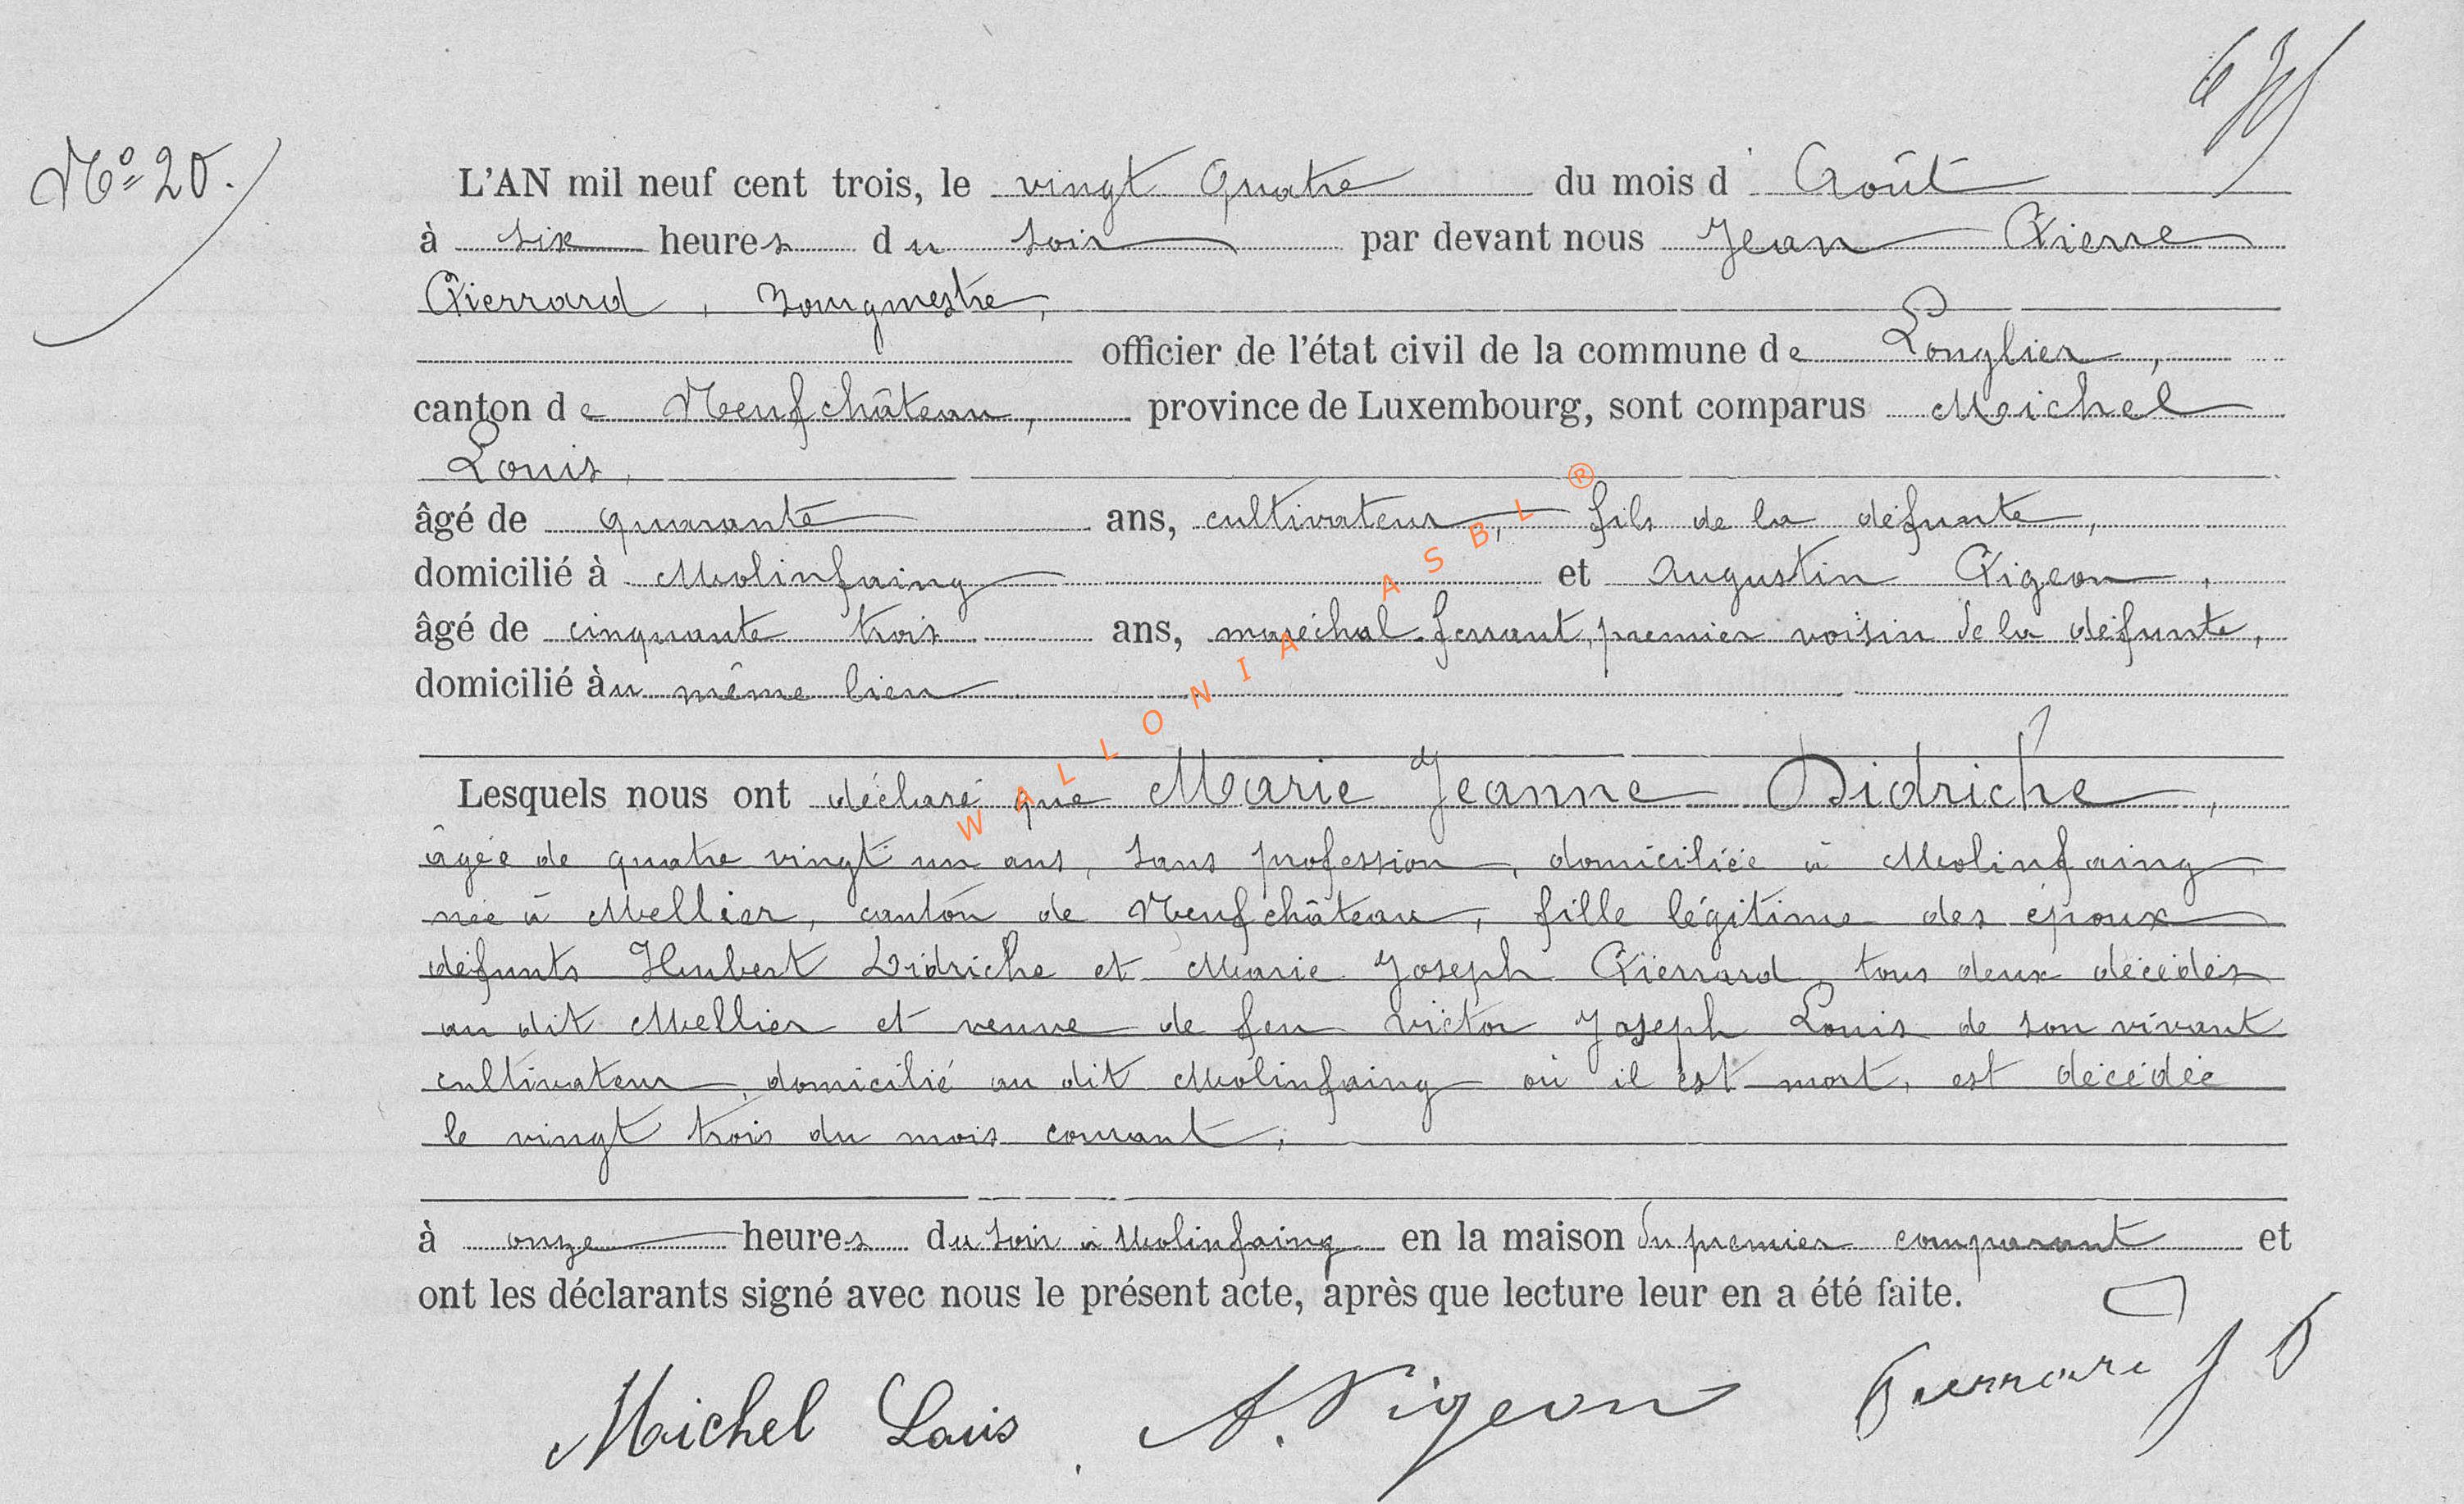 Nº 20.
L'AN mil neuf cent trois, le vingt quatre du mois d'Août
à six heures du soir par devant nous Jean Pierre
Pierrard, Bourgmestre,
officier de l'état civil de la commune de Longlier,
canton de Neufchâteau, province de Luxembourg, sont comparus Michel
Louis,
âgé de quarante ans, cultivateur, fils de la défunte,
domicilié à Molinfaing et Augustin Pigeon,
âgé de cinquante trois ans, maréchal-ferrant, premier voisin de la défunte,
domicilié àu même lieu
Lesquels nous ont déclaré que Marie Jeanne Didriche,
âgée de quatre vingt un ans, sans profession, domiciliée à Molinfaing
née à Mellier, canton de Neufchâteau, fille légitime des époux
défunts Hubert Didriche et Marie Joseph Pierrard, tous deux décédés
au dit Mellier et veuve de feu Victor Joseph Louis de son vivant
cultivateur, domicilié au dit Molinfaing où il est mort, est décédée
le vingt trois du mois courant,
à onze heures du soir à Molinfaing en la maison du premier comparant et
ont les déclarants signé avec nous le présent acte, après que lecture leur en a été faite.
Michel Louis A. Pigeon Pierrard J P
WALLONIA ASBL ®